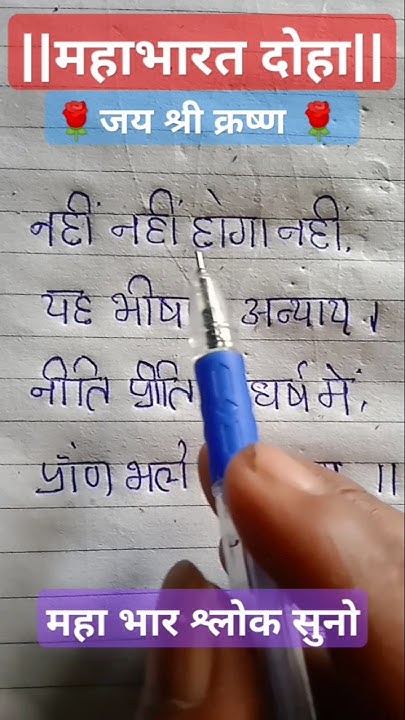 ||महाभारत दोहा||
🌹 जय श्री क्रष्ण 🌹
नहीं नहीं होगा नहीं,
यह भीष अन्याय ।
नीति प्रीति घर्ष में,
प्रांण भले ॥
महा भार श्लोक सुनो